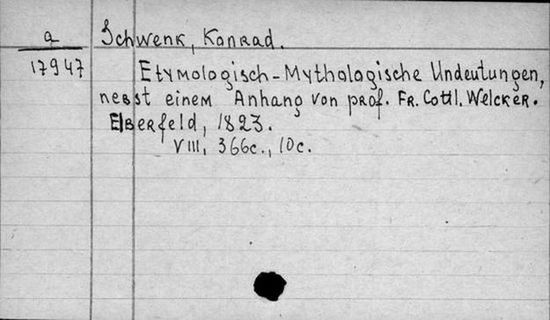 a
17947
Schwenk, Konrad.
Etymologisch-Mythologische Undeutungen,
nebst einem Anhang von prof. Fr. Gottl. Welcker.
Elberfeld, 1823.
VIII, 366c., 10c.